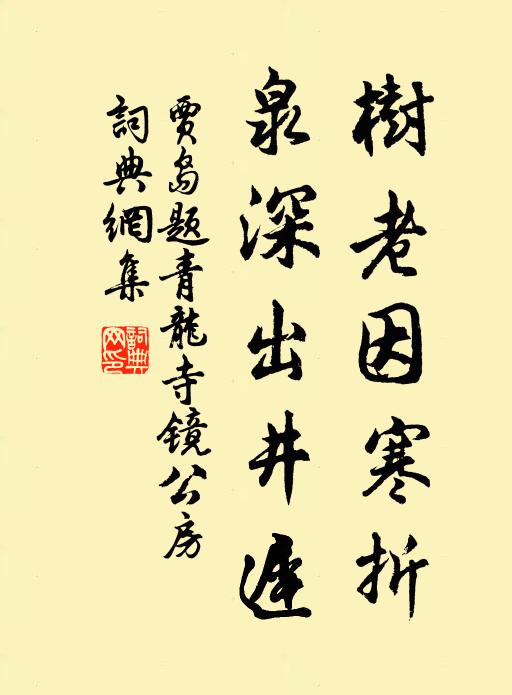 樹老因寒折
泉深出井遲
賈島题青龍寺镜公房
詞典網集
詞典
网印